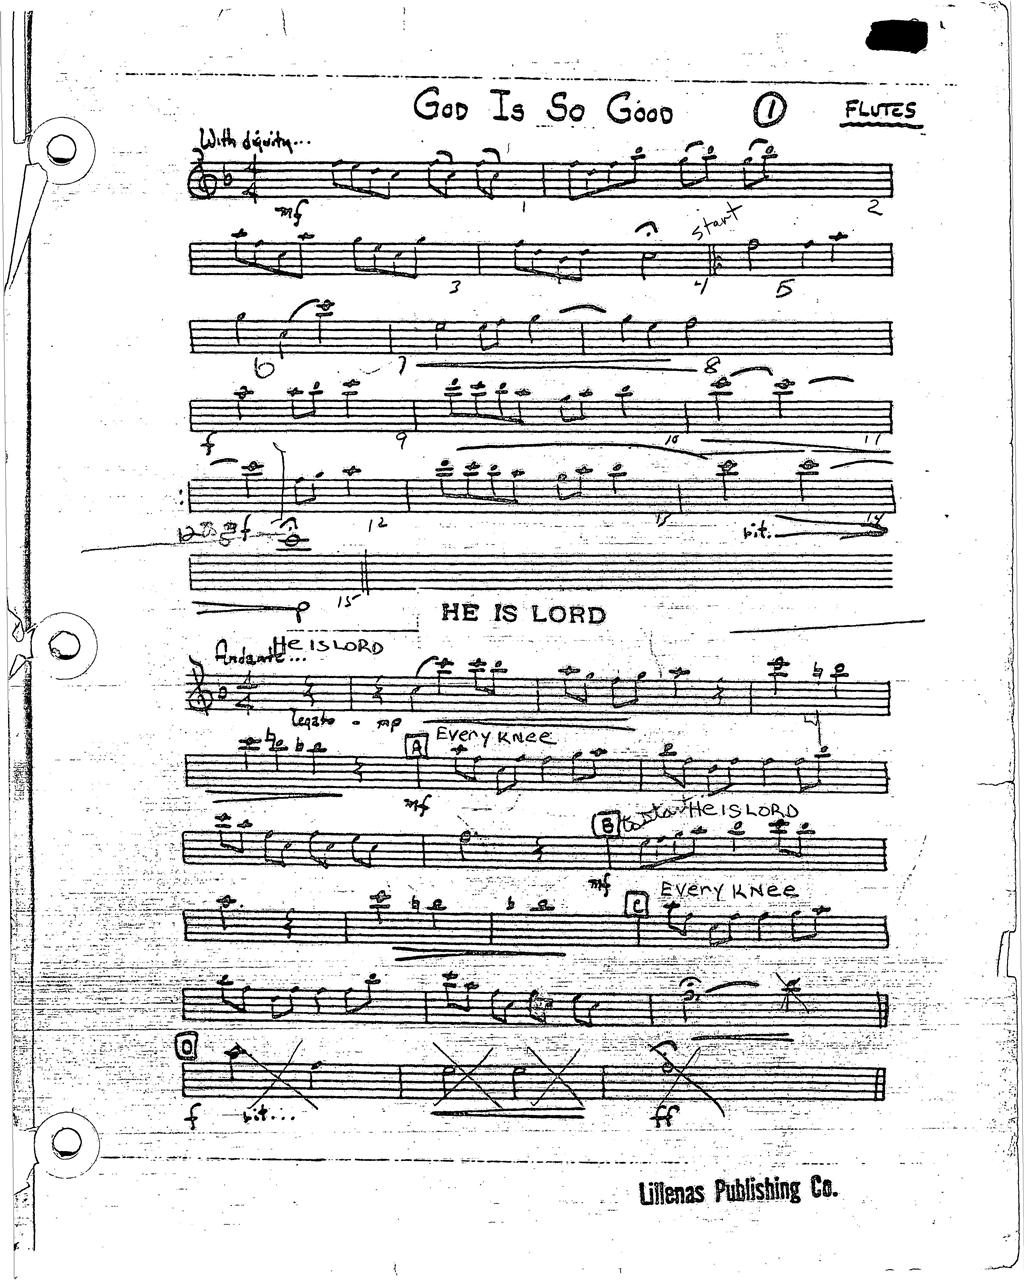 God Is So Good ① FLUTES
With dignity...
mf 1 2
start
3 4 5
6 7 8
f 9 10 11
f 12 13 14
bit.
p 15
HE IS LORD
He is LORD
Andante...
legato - mp
A Every Knee
mf
B to start He is LORD
mf
C Every Knee
D
f bit... ff
Lillenas Publishing Co.